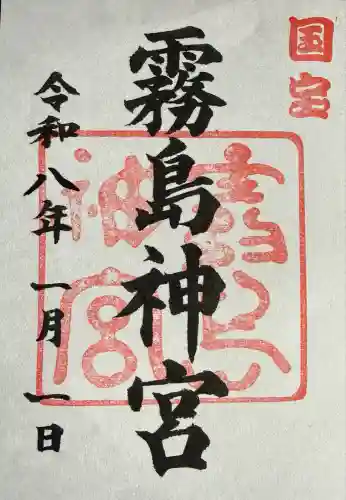 国宝
霧島神宮
令和八年一月一日